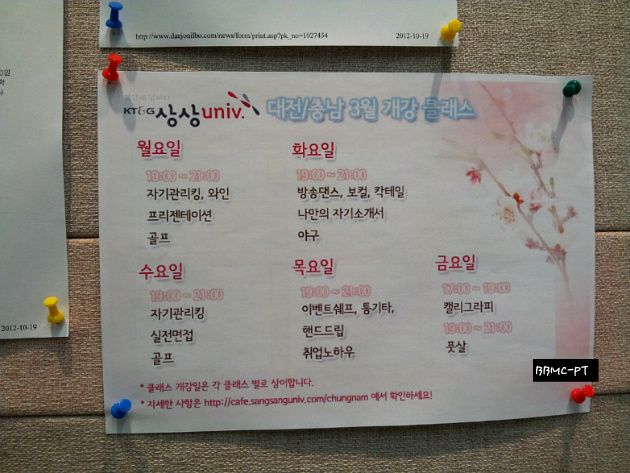 http://www.daejonilbo.com/news/form/print.asp?pk_no=1027454
2012-10-19
KT&G 상상univ. 대전/충남 3월 개강 클래스
월요일
19:00 ~ 21:00
자기관리킹, 와인
프리젠테이션
골프
화요일
19:00 ~ 21:00
방송댄스, 보컬, 칵테일
나만의 자기소개서
야구
수요일
19:00 ~ 21:00
자기관리킹
실전면접
골프
목요일
19:00 ~ 21:00
이벤트쉐프, 통기타,
핸드드립
취업노하우
금요일
17:00 ~ 19:00
캘리그라피
19:00 ~ 21:00
풋살
2012-10-19
BBMC-PT
* 클래스 개강일은 각 클래스 별로 상이합니다.
* 자세한 사항은 http://cafe.sangsanguniv.com/chungnam 에서 확인하세요!